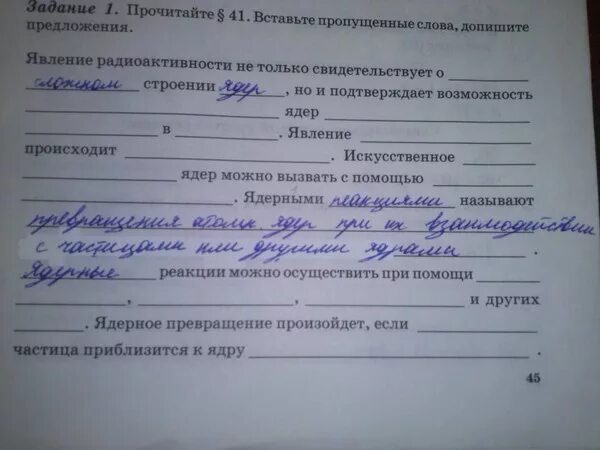 Задание 1. Прочитайте § 41. Вставьте пропущенные слова, допишите
предложения.
Явление радиоактивности не только свидетельствует о
сложном строении ядер, но и подтверждает возможность
ядер
в . Явление
происходит . Искусственное
ядер можно вызвать с помощью
. Ядерными реакциями называют
превращения атомн. ядер при их взаимодействии
с частицами или другими ядрами .
Ядерные реакции можно осуществить при помощи
, , и других
. Ядерное превращение произойдет, если
частица приблизится к ядру .
45